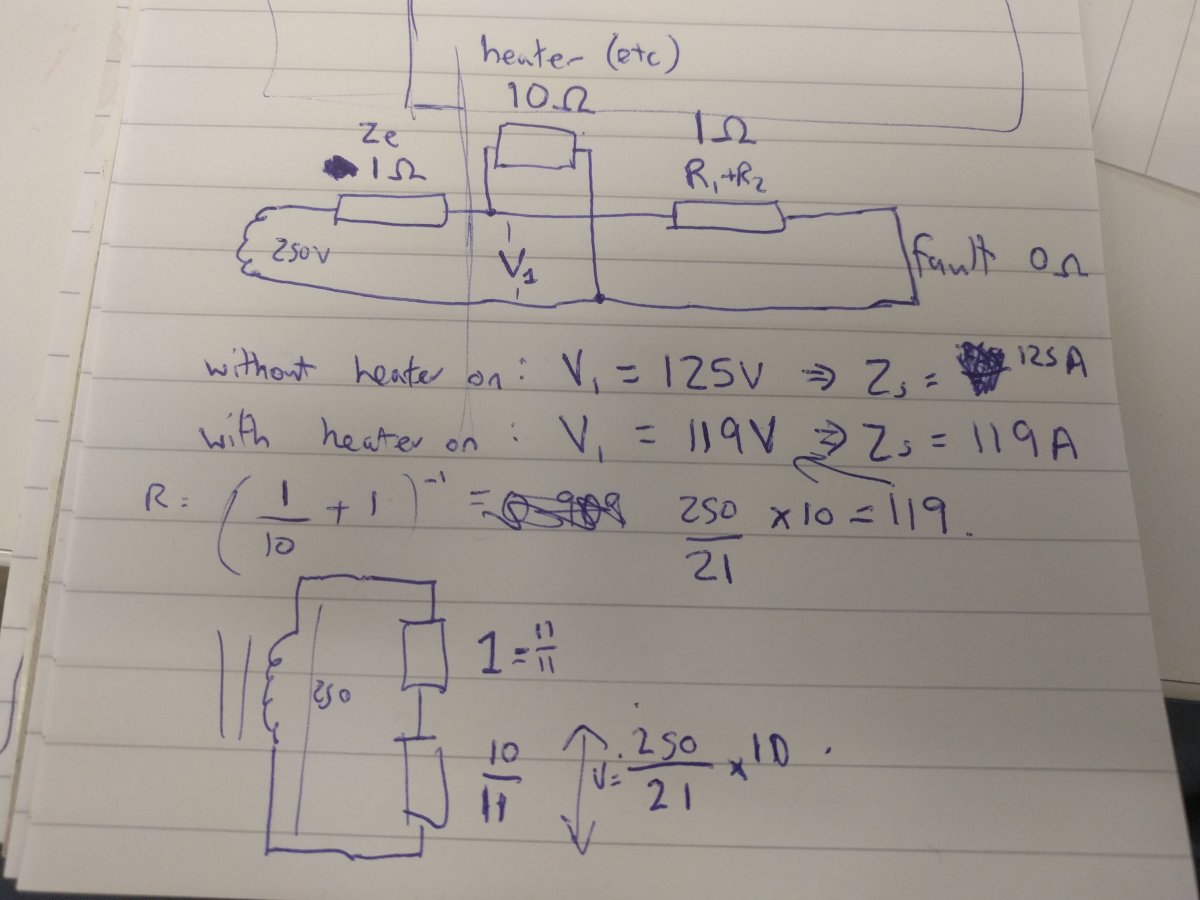 heater (etc)
10Ω
Ze
1Ω
1Ω
R₁+R₂
250V
V₁
fault 0Ω
without heater on: V₁ = 125V ⇒ Zs = 125A
with heater on: V₁ = 119V ⇒ Zs = 119A
R = (1/10 + 1)⁻¹ = 250/21 × 10 = 119.
1 = 11/11
250
10/11
V = 250/21 × 10.